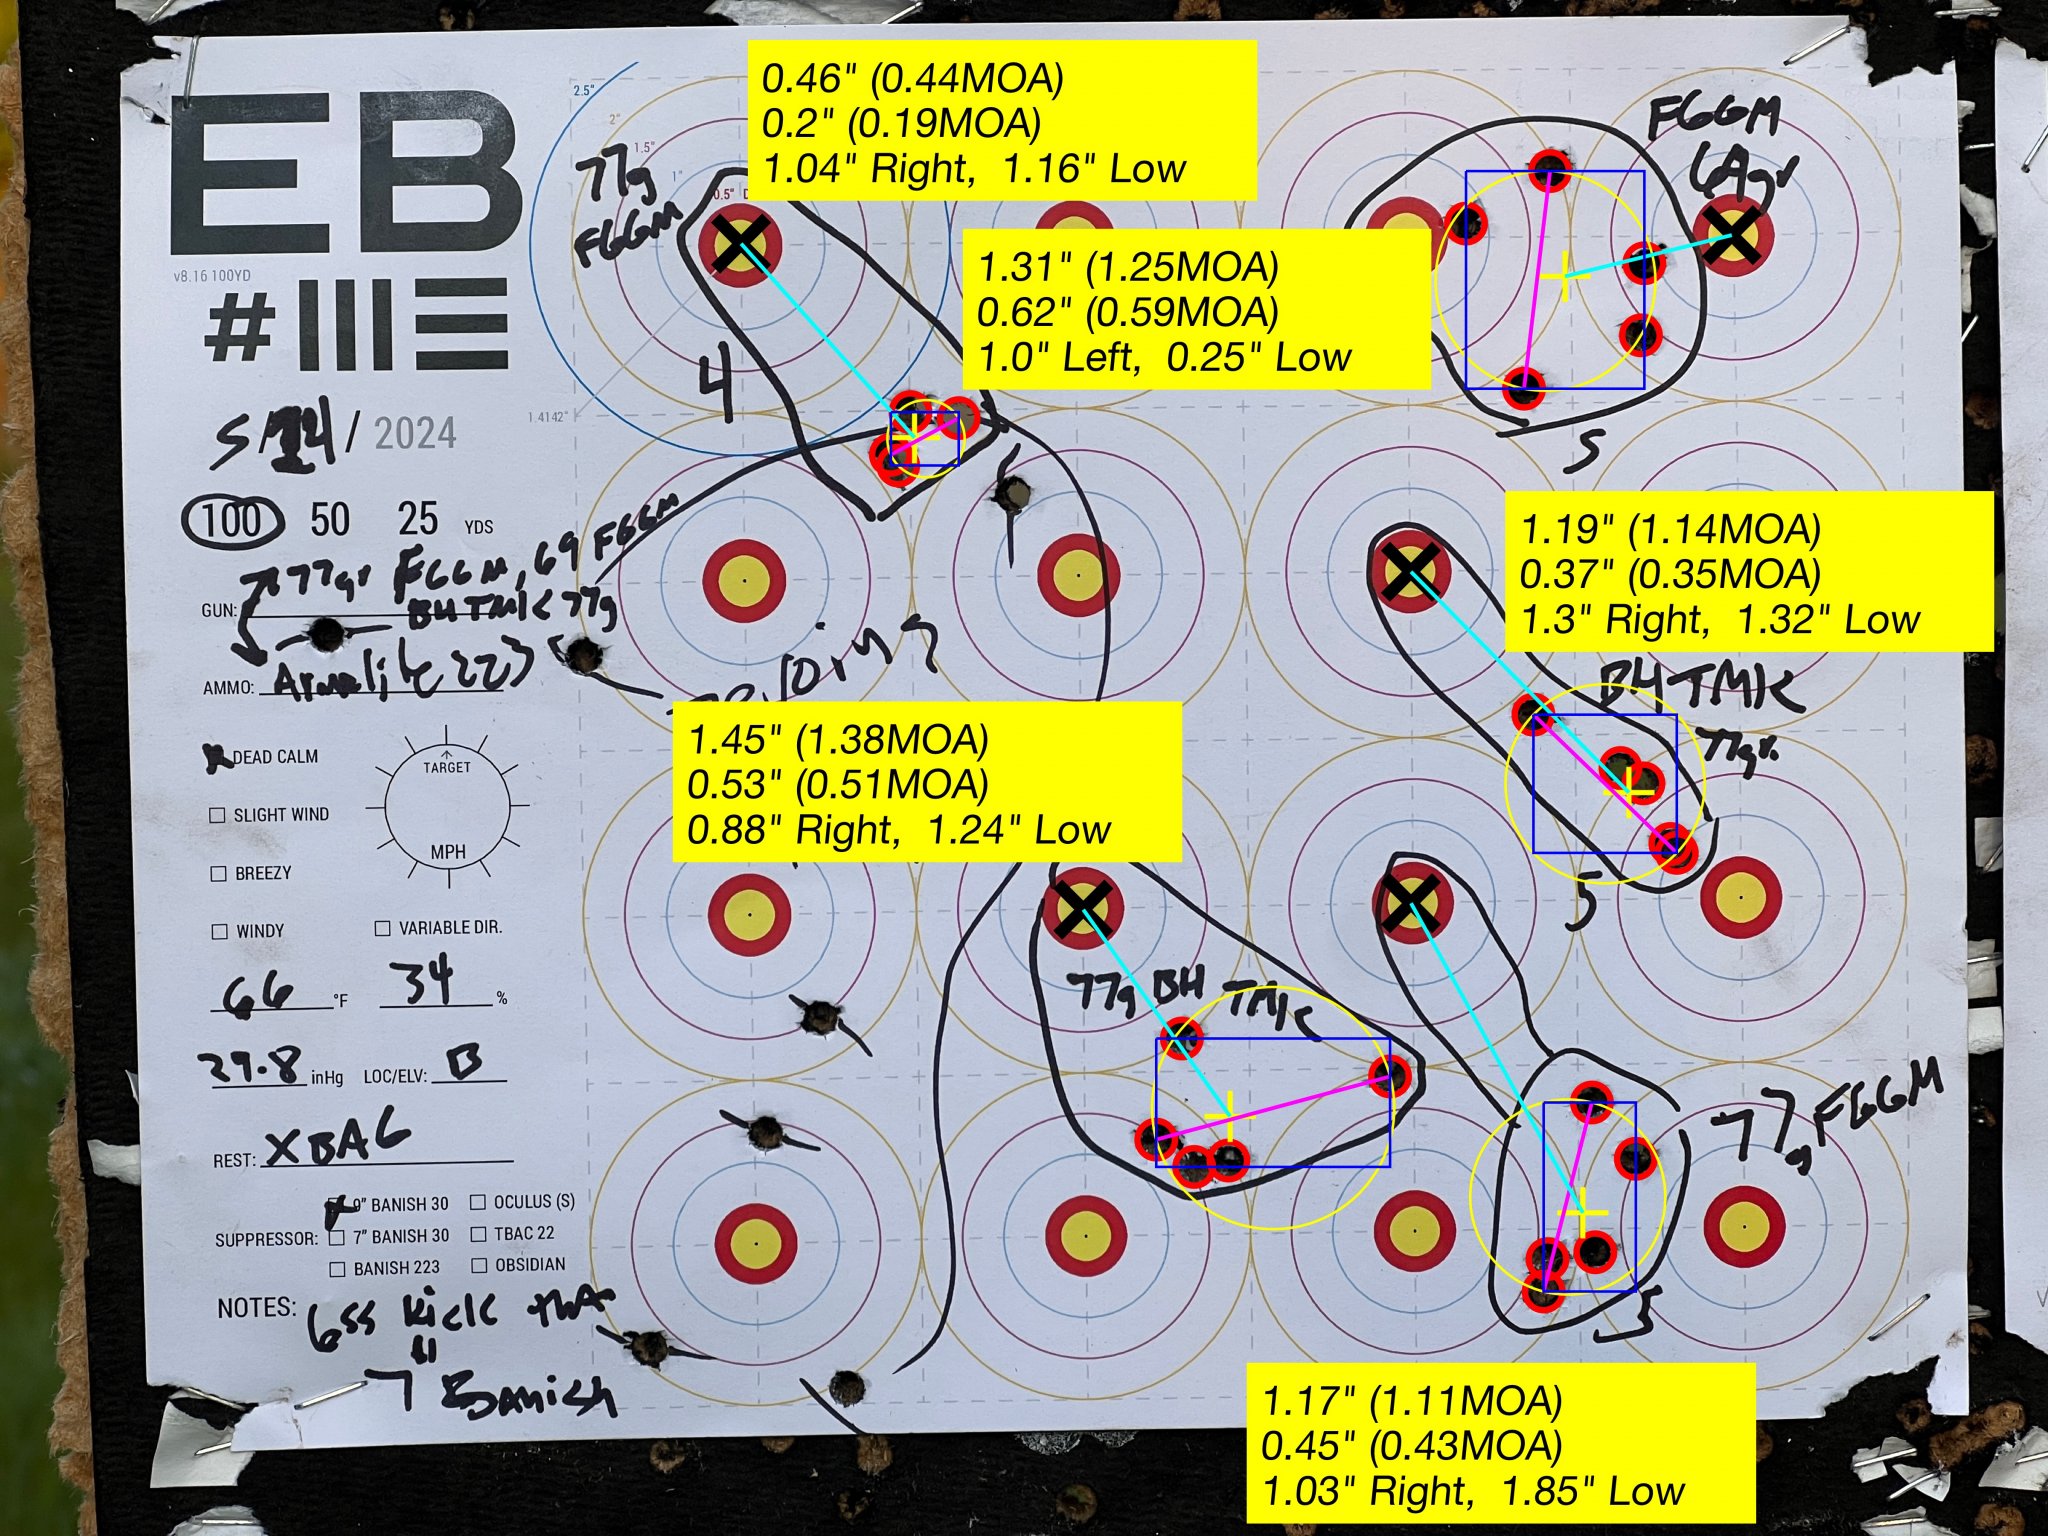 EB
v8.16 100YD
#ME
5/14/ 2024
100 50 25 YDS
77gr FGGM, 69 FGGM
GUN: BHTMK 77g
AMMO: Armalite 223
DEAD CALM
SLIGHT WIND
BREEZY
WINDY
VARIABLE DIR.
TARGET
MPH
66 °F 34 %
29.8 inHg LOC/ELV: B
REST: XBAG
SUPPRESSOR:
9" BANISH 30
7" BANISH 30
BANISH 223
OCULUS (S)
TBAC 22
OBSIDIAN
NOTES: Less kick than
7" Banish
2.5"
2"
1.5"
1"
0.5" D
1.4142"
77g
FGGM
4
0.46" (0.44MOA)
0.2" (0.19MOA)
1.04" Right, 1.16" Low
1.31" (1.25MOA)
0.62" (0.59MOA)
1.0" Left, 0.25" Low
FGGM
69gr
5
1.19" (1.14MOA)
0.37" (0.35MOA)
1.3" Right, 1.32" Low
BHTMK
77gr.
5
1.45" (1.38MOA)
0.53" (0.51MOA)
0.88" Right, 1.24" Low
77g BH TMK
77g FGGM
5
1.17" (1.11MOA)
0.45" (0.43MOA)
1.03" Right, 1.85" Low